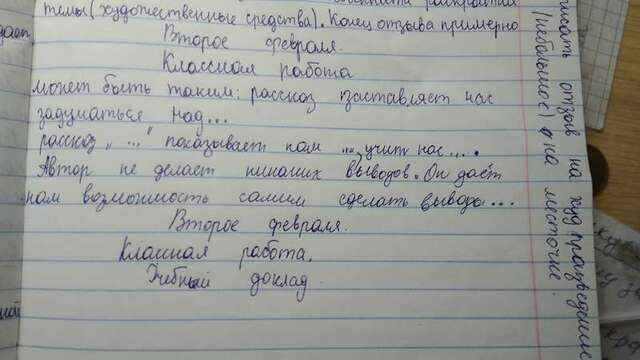 темы (художественные средства). Конец отзыва примерно
Второе февраля.
Классная работа
может быть таким: рассказ заставляет нас
задуматься над...
рассказ „ ... " показывает нам ..., учит нас....
Автор не делает никаких выводов. Он даёт
нам возможность самим сделать выводы...
Второе февраля.
Классная работа.
Учебный доклад
писать отзыв на худ произведение
(небольшое) на листочке.